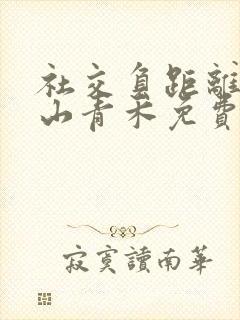 社交負距離
山青木免費
寂寞讀南華